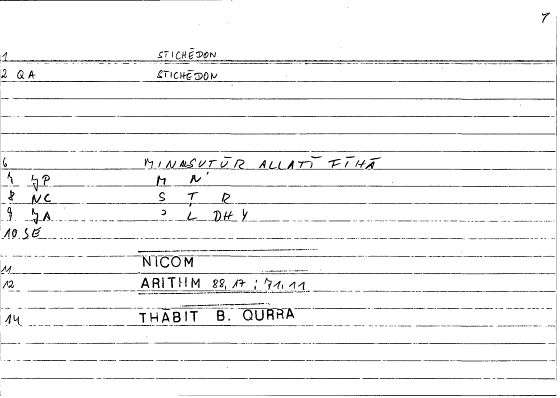 7
1 STICHĒDON
2 QA STICHĒDON
6 MINASUTŪR ALLATĪ FĪHĀ
7 JP M N
8 NC S T R
9 JA ʾ L DHY
10 SE
11 NICOM
12 ARITHM 88,17 ; 71,11
14 THĀBIT B. QURRA